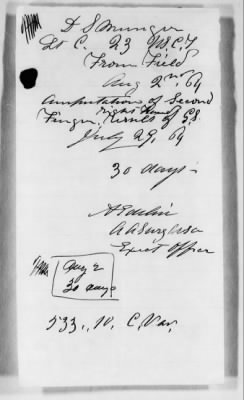 D S Munger
Lt C. 23 U.S.C.T
From Field
Aug 2nd, 64
Amputation of Second
Finger, Right Hand Results of G.S.
July 29, 64
30 days
A A Surg USA
Exmt Officer
Aug 2
30 days
533., 10, C. Var,